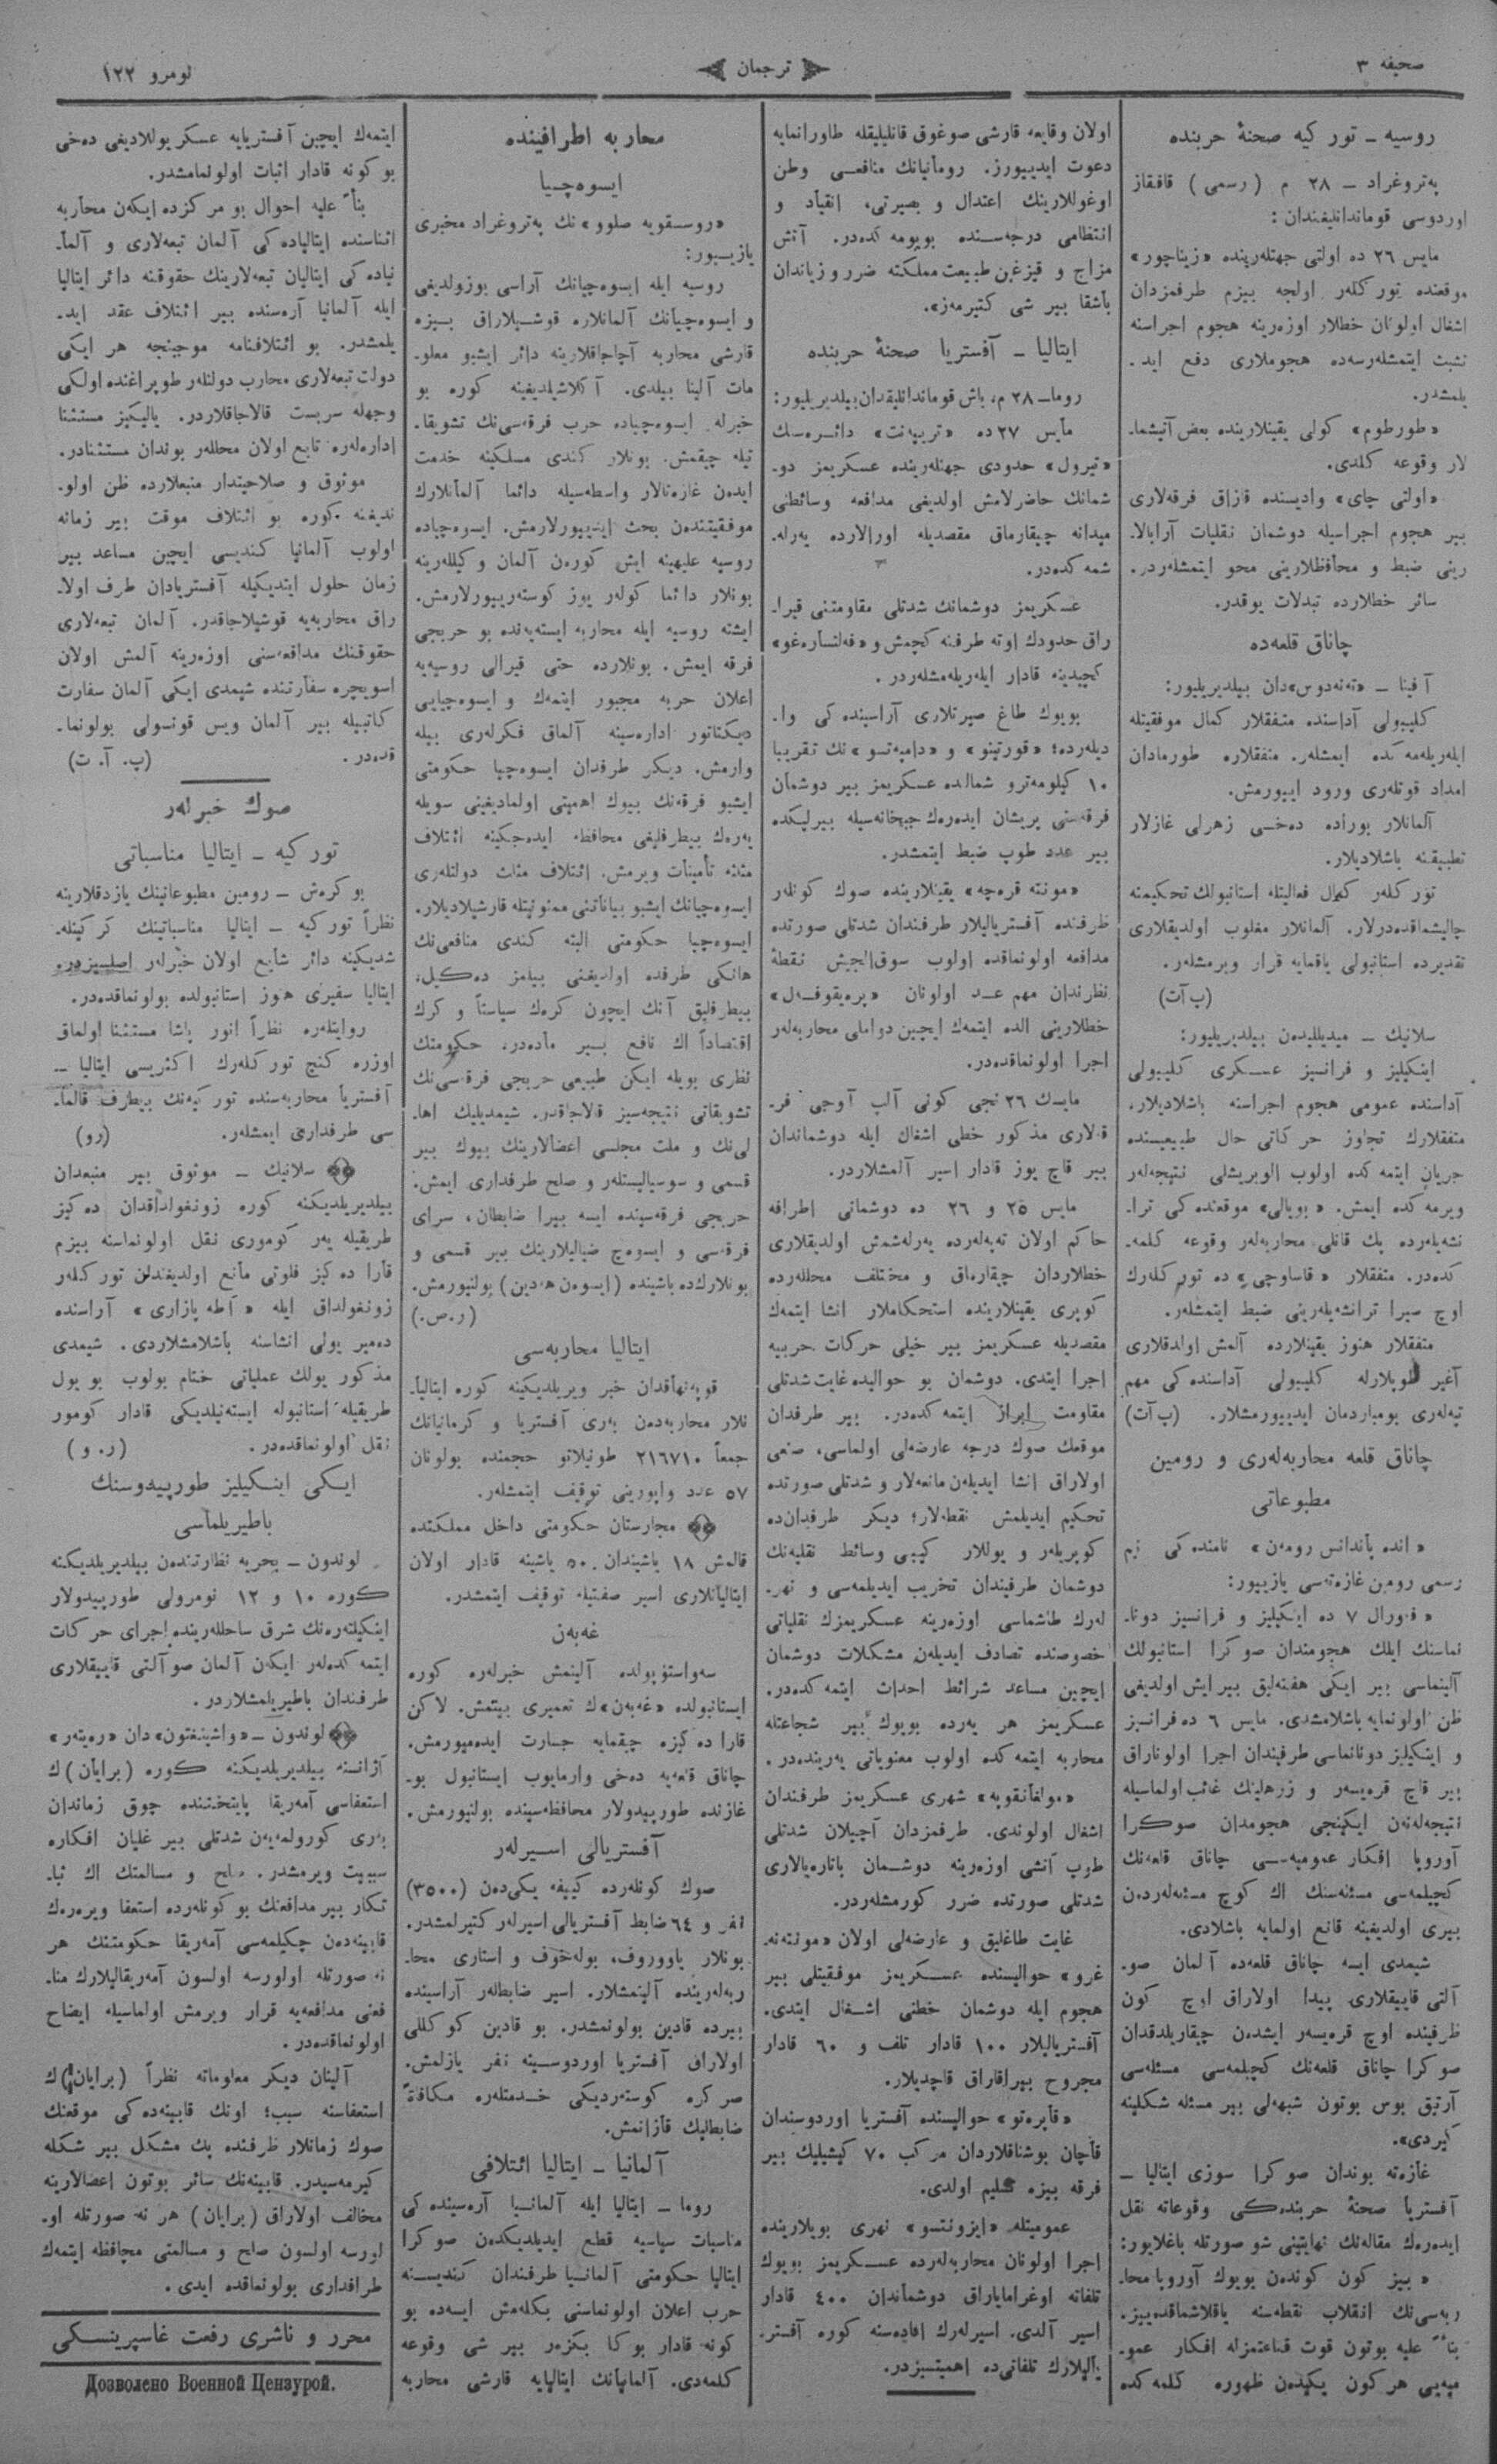 صحیفه ٣
ترجمان
نومرو ١٢٢
روسیه ــ تورکیه صحنهٔ حربنده
په‌تروغراد ــ ٢٨ م (رسمی) قافقاز
اوردوسی قوماندانلیغندان:
مایس ٢٦ ده اولتی جهتلەرینده «زیناچور»
موقعنده تورکلەر اولجه بیزم طرفمزدان
اشغال اولونان خطلار اوزەرینه هجوم اجراسنه
تشبث ایتمشلەرسەده هجوملاری دفع اید ـ
یلمشدر.
«طورطوم» کولی یقینلارینده بعض آتیشما‌ـ
لار وقوعه کلدی.
«اولتی چای» وادیسنده قازاق فرقەلاری
بیر هجوم اجراسیله دوشمان نقلیات آرابالا‌ـ
رینی ضبط و محافظلارینی محو ایتمشلەردر.
سائر خطلارده تبدلات یوقدر.
چاناق قلعەده
آفینا ــ «تەنەدوس»دان بیلدیریلیور:
کلیبولی آداسنده متفقلار کمال موفقیتله
ایلەریلەمەکده ایمشلەر. متفقلاره طورمادان
امداد قوتلەری ورود ایییورمش.
آلمانلار بوراده دەخی زهرلی غازلار
تطبیقنه باشلادیلار.
تورکلەر کمال فعالیتله استانبولك تحکیمنه
چالیشماقدەدرلار. آلمانلار مغلوب اولدیقلاری
تقدیرده استانبولی یاقمایه قرار ویرمشلەر.
(پ آت)
سلانیك ــ میدیللیدەن بیلدیریلیور:
اینکیلیز و فرانسیز عسکری کلیبولی
آداسنده عمومی هجوم اجراسنه باشلادیلار.
متفقلارك تجاوز حرکاتی حال طبیعیسنده
جریان ایتمەکده اولوب الویریشلی نتیجەلەر
ویرمەکده ایمش. «بویالی» موقعنده‌کی ترا‌ـ
نشەیلەرده پك قانلی محاربەلەر وقوعه کلمە‌ـ
کدەدر. متفقلار «قاساوچی»ده تورکلەرك
اوچ سیرا ترانشەیلەرینی ضبط ایتمشلەر.
متفقلار هنوز یقینلارده آلمش اولدقلاری
آغیر طوپلارله کلیبولی آداسنده‌کی مهم
تپەلەری بومباردمان ایدییورمشلار. (پ آت)
چاناق قلعه محاربەلەری و رومین
مطبوعاتی
«اندە پاندانس رومەن» نامنده‌کی نیم
رسمی رومین غازەتەسی یازییور:
«فورال ٧ ده اینکیلیز و فرانسیز دونا‌ـ
نماسنك ایلك هجومندان صوکرا استانبولك
آلینماسی بیر ایکی هفتەلیق بیر ایش اولدیغی
ظن اولونمایه باشلامشدی. مایس ٦ ده فرانسیز
و اینکیلیز دونانماسی طرفیندان اجرا اولوناراق
بیر قاچ قرەیسەر و زرهلینك غائب اولماسیله
نتیجەلەنەن ایکینجی هجومدان صوکرا
آوروپا افکار عمومیەسی چاناق قلعەنك
کچیلمەسی مسئەسنك اك کوچ مسئەلەردەن
بیری اولدیغینه قانع اولمایه باشلادی.
شیمدی ایسه چاناق قلعەده آلمان صو‌ـ
آلتی قاییقلاری پیدا اولاراق اوچ کون
ظرفینده اوچ قرەیسەر ایشدەن چیقاریلدقدان
صوکرا چاناق قلعەنك کچیلمەسی مسئلەسی
آرتیق بوس بوتون شبهەلی بیر مسئله شکلینه
کیردی».
غازەته بوندان صوکرا سوزی ایتالیا ــ
آفستریا صحنهٔ حربنده‌کی وقوعاته نقل
ایدەرەك مقالەنك نهایتینی شو صورتله باغلایور:
«بیز کون کوندەن بویوك آوروپا محا‌ـ
ربەسی‌نك انقلاب نقطەسنه یاقلاشماقدەییز.
بناءً علیه بوتون قوت قناعتمزله افکار عمو‌ـ
میەیی هرکون یکیدەن ظهوره کلمەکده
اولان وقایعه قارشی صوغوق قانلیلیقله طاورانمایه
دعوت ایدییورز. رومانیانك منافعی وطن
اوغوللارینك اعتدال و بصیرتی، انقیاد و
انتظامی درجەسنده بویومەکدەدر. آتش
مزاج و قیزغین طبیعت مملکته ضرر و زیاندان
باشقا بیر شی کتیرمەز».
ایتالیا ــ آفستریا صحنهٔ حربنده
روما ــ ٢٨ م، باش قوماندانلیقدان بیلدیریلیور:
مایس ٢٧ ده «تریپەنت» دائرەسك
«تیرول» حدودی جهتلەرینده عسکریمز دو‌ـ
شمانك حاضرلامش اولدیغی مدافعه وسائطنی
میدانه چیقارماق مقصدیله اورالارده یەرلە‌ـ
شمەکدەدر.
عسکریمز دوشمانك شدتلی مقاومتنی قیرا‌ـ
راق حدودك اوته طرفنه کچمش و «فەلتسارەغو»
کچیدینه قادار ایلەریلەمشلەردر.
بویوك طاغ صیرتلاری آراسینده‌کی وا‌ـ
دیلەرده؛ «قورتینو» و «دامپەتسو»نك تقریبا
١٠ کیلومەترو شمالنده عسکریمز بیر دوشمان
فرقەسنی پریشان ایدەرەك جبخانەسیله بیرلیکده
بیر عدد طوپ ضبط ایتمشدر.
«مونته قرەچه» یقینلارینده صوك کونلەر
ظرفنده آفستریالیلار طرفندان شدتلی صورتده
مدافعه اولونماقده اولوب سوق‌الجیش نقطهٔ
نظرندان مهم عد اولونان «پرەیقوفەل»
خطلارینی الده ایتمەك ایچین دواملی محاربەلەر
اجرا اولونماقدەدر.
مایسك ٢٦ نجی کونی آلپ آوجی فر‌ـ
قەلاری مذکور خطی اشغال ایله دوشماندان
بیر قاچ یوز قادار اسیر آلمشلاردر.
مایس ٢٥ و ٢٦ ده دوشمانی اطرافه
حاکم اولان تەپەلەرده یەرلەشمش اولدیقلاری
خطلاردان چیقارماق و مختلف محللەرده
کوپری یقینلارینده استحکاملار انشا ایتمەك
مقصدیله عسکریمز بیر خیلی حرکات حربیه
اجرا ایتدی. دوشمان بو حوالیده غایت شدتلی
مقاومت ابراز ایتمەکدەدر. بیر طرفدان
موقعك صوك درجه عارضەلی اولماسی، صنعی
اولاراق انشا ایدیلەن مانعەلار و شدتلی صورتده
تحکیم ایدیلمش نقطەلار؛ دیکر طرفدان‌ده
کوپریلەر و یوللار کیبی وسائط نقلیەنك
دوشمان طرفیندان تخریب ایدیلمەسی و نهر‌ـ
لەرك طاشماسی اوزەرینه عسکریمزك نقلیاتی
خصوصنده تصادف ایدیلەن مشکلات دوشمان
ایچین مساعد شرائط احداث ایتمەکدەدر.
عسکریمز هر یەرده بویوك بیر شجاعتله
محاربه ایتمەکده اولوب معنویاتی یەریندەدر.
«مونفانقویه» شهری عسکریمز طرفندان
اشغال اولوندی. طرفمزدان آچیلان شدتلی
طوپ آتشی اوزەرینه دوشمان باتاریالاری
شدتلی صورتده ضرر کورمشلەردر.
غایت طاغلیق و عارضەلی اولان «مونتەنە‌ـ
غرو» حوالیسنده عسکریمز موفقیتلی بیر
هجوم ایله دوشمان خطنی اشغال ایتدی.
آفستریالیلار ١٠٠ قادار تلف و ٦٠ قادار
مجروح بیراقاراق قاچدیلار.
«قاپرەتو» حوالیسنده آفستریا اوردوسندان
قاچان بوشناقلاردان مرکب ٧٠ کیشیلیك بیر
فرقه بیزه تسلیم اولدی.
عمومیتله «ایزونتسو» نهری بویلارینده
اجرا اولونان محاربەلەرده عسکریمز بویوك
تلفاته اوغرامایاراق دوشماندان ٤٠٠ قادار
اسیر آلدی. اسیرلەرك افادەسنه کوره آفستر‌ـ
یالیلارك تلفاتی‌ده اهمیتسیزدر.
محاربه اطرافینده
ایسوەچیا
«روسسقویه صلوو»نك په‌تروغراد مخبری
یازییور:
روسیه ایله ایسوەچیانك آراسی بوزولدیغی
و ایسوەچیانك آلمانلاره قوشیلاراق بیزه
قارشی محاربه آچاجاقلارینه دائر ایشبو معلو‌ـ
مات آلینا بیلدی. آکلاشیلدیغینه کوره بو
خبرلەر ایسوەچیاده حرب فرقەسی‌نك تشویقا‌ـ
تیله چیقمش. بونلار کندی مسلکینه خدمت
ایدەن غازەتالار واسطەسیله دائما آلمانلارك
موفقیتندەن بحث ایتییورلارمش. ایسوەچیاده
روسیه علیهینه ایش کورەن آلمان وکیللەرینه
بونلار دائما کولەر یوز کوستەرییورلارمش.
ایشته روسیه ایله محاربه ایستەیەنده بو حربجی
فرقه ایمش. بونلارده حتی قیرالی روسیەیه
اعلان حربه مجبور ایتمەك و ایسوەچیایی
دیکتاتور ادارەسینه آلماق فکرلەری بیله
وارمش. دیکر طرفدان ایسوەچیا حکومتی
ایشبو فرقەنك بیوك اهمیتی اولمادیغینی سویله
یەرەك بیطرفلیغی محافظه ایدەجکینه ائتلاف
مثلثه تأمینات ویرمش. ائتلاف مثلث دولتلەری
ایسوەچیانك ایشبو بیاناتنی ممنونیتله قارشیلادیلار.
ایسوەچیا حکومتی البته کندی منافعی‌نك
هانکی طرفده اولدیغنی بیلمز دەکیل،
بیطرفلیق آنك ایچون کرەك سیاستاً و کرك
اقتصاداً اك نافع بیر مادەدر. حکومتك
نظری بویله ایکن طبیعی حربجی فرقەسی‌نك
تشویقاتی نتیجەسیز قالاجاقدر. شیمدیلیك اها‌ـ
لی‌نك و ملت مجلسی اعضالارینك بیوك بیر
قسمی و سوسیالیستلەر و صلح طرفداری ایمش.
حربجی فرقەسینده ایسه بیرا ضابطان، سرای
فرقەسی و ایسوەچ ضیالیلارینك بیر قسمی و
بونلارك‌ده باشینده (ایسوەن هەدین) بولنیورمش.
(ر. ص.)
ایتالیا محاربەسی
قوپەنهاقدان خبر ویریلدیکینه کوره ایتالیا‌ـ
نلار محاربەدەن بەری آفستریا و کرمانیانك
جمعاً ٢١٦٧١٠ طونیلاتو حجمنده بولونان
٥٧ عدد واپورینی توقیف ایتمشلەر.
مجارستان حکومتی داخل مملکتده
قالمش ١٨ یاشیندان ٥٠ یاشینه قادار اولان
ایتالیانلاری اسیر صفتیله توقیف ایتمشدر.
غەبەن
سەواستوپولده آلینمش خبرلەره کوره
ایستانبولده «غەبەن»ك تعمیری بیتمش. لاکن
قارا دەکیزه چیقمایه جسارت ایدەمیورمش.
چاناق قلعەیه دەخی وارمایوب ایستانبول بو‌ـ
غازنده طورپیدولار محافظەسینده بولنیورمش.
آفستریالی اسیرلەر
صوك کونلەرده کییفه یکی‌دەن (٣٥٠٠)
نفر و ٦٤ ضابط آفستریالی اسیرلەر کتیرلمشدر.
بونلار یاووروف، بولەخوف و استاری محا‌ـ
ربەلەرینده آلینمشلار. اسیر ضابطالەر آراسینده
بیرده قادین بولونمشدر. بو قادین کوکللی
اولاراق آفستریا اوردوسینه نفر یازلمش.
صرکره کوستەردیکی خدمتلەره مکافاةً
ضابطالیك قازانمش.
آلمانیا ــ ایتالیا ائتلافی
روما ــ ایتالیا ایله آلمانیا آرەسینده‌کی
مناسبات سیاسیه قطع ایدیلدیکدەن صوکرا
ایتالیا حکومتی آلمانیا طرفندان کندیسنه
حرب اعلان اولونماسنی بکلەمش ایسەده بو
کونه قادار بوکا بکزەر بیر شی وقوعه
کلمەدی. آلمانیانك ایتالیایه قارشی محاربه
ایتمەك ایچین آفستریایه عسکر یوللادیغی دەخی
بو کونه قادار اثبات اولولمامشدر.
بناءً علیه احوال بو مرکزده ایکەن محاربه
اثناسنده ایتالیاده‌کی آلمان تبعەلاری و آلما‌ـ
نیاده‌کی ایتالیان تبعەلارینك حقوقنه دائر ایتالیا
ایله آلمانیا آرەسنده بیر ائتلاف عقد اید‌ـ
یلمشدر. بو ائتلافنامه موجبنجه هر ایکی
دولت تبعەلاری محارب دولتلەر طوپراغنده اولکی
وجهله سربست قالاجاقلاردر. یالیکیز مستثنا
ادارەلەره تابع اولان محللەر بوندان مستثنادر.
موثوق و صلاحیتدار منبعلارده ظن اولو‌ـ
ندیغنه کوره بو ائتلاف موقت بیر زمانه
اولوب آلمانیا کندیسی ایچین مساعد بیر
زمان حلول ایتدیکیله آفستریادان طرف اولا‌ـ
راق محاربەیه قوشیلاجاقدر. آلمان تبعەلاری
حقوقنك مدافعەسنی اوزەرینه آلمش اولان
اسویچره سفارتنده شیمدی ایکی آلمان سفارت
کاتبیله بیر آلمان ویس قونسولی بولونما‌ـ
قدەدر. (پ. آ. ت)
صوك خبرلەر
تورکیه ــ ایتالیا مناسباتی
بوکرەش ــ رومین مطبوعاتینك یازدقلارینه
نظراً تورکیه ــ ایتالیا مناسباتینك کرکینلە‌ـ
شدیکینه دائر شایع اولان خبرلەر اصلسیزدر.
ایتالیا سفیری هنوز استانبولده بولونماقدەدر.
روایتلەره نظراً انور پاشا مستثنا اولماق
اوزره کنج تورکلەرك اکثریسی ایتالیا ــ
آفستریا محاربەسنده تورکیەنك بیطرف قالما‌ـ
سی طرفداری ایمشلەر. (رو)
سلانیك ــ موثوق بیر منبعدان
بیلدیریلدیکنه کوره زونغولداقدان دەکیز
طریقیله یەر کوموری نقل اولونماسنه بیزم
قارا دەکیز فلوتی مانع اولدیغندن تورکلەر
زونغولداق ایله «آطه پازاری» آراسنده
دەمیر یولی انشاسنه باشلامشلاردی. شیمدی
مذکور یولك عملیاتی ختام بولوب بو یول
طریقیله استانبوله ایستەنیلدیکی قادار کومور
نقل اولونماقدەدر. (ر. و)
ایکی اینکیلیز طورپیدوسنك
باطیریلماسی
لوندون ــ بحریه نظارتندەن بیلدیریلدیکنه
کوره ١٠ و ١٢ نومرولی طورپیدولار
اینکیلتەرەنك شرق ساحللەرینده اجرای حرکات
ایتمەکدەلەر ایکەن آلمان صوآلتی قاییقلاری
طرفندان باطیریلمشلاردر.
لوندون ــ «واشینغتون»دان «رەیتەر»
آژانسنه بیلدیریلدیکنه کوره (برایان)ك
استعفاسی آمەریقا پایتختنده چوق زماندان
بەری کورولمەیەن شدتلی بیر غلیان افکاره
سببیت ویرمشدر. صلح و مسالمتك اك ثبا‌ـ
تکار بیر مدافعنك بو کونلەرده استعفا ویرەرەك
قابینەدەن چکیلمەسی آمەریقا حکومتنك هر
نه صورتله اولورسه اولسون آمەریقالیلارك منا‌ـ
فعنی مدافعەیه قرار ویرمش اولماسیله ایضاح
اولونماقدەدر.
آلینان دیکر معلوماته نظراً (برایان)ك
استعفاسنه سبب؛ اونك قابینەده‌کی موقعنك
صوك زمانلار ظرفنده پك مشکل بیر شکله
کیرمەسیدر. قابینەنك سائر بوتون اعضالارینه
مخالف اولاراق (برایان) هر نه صورتله او‌ـ
لورسه اولسون صلح و مسالمتی محافظه ایتمەك
طرافداری بولونماقده ایدی.
محرر و ناشری رفعت غاسپرینسکی
Дозволено Военной Цензурой.